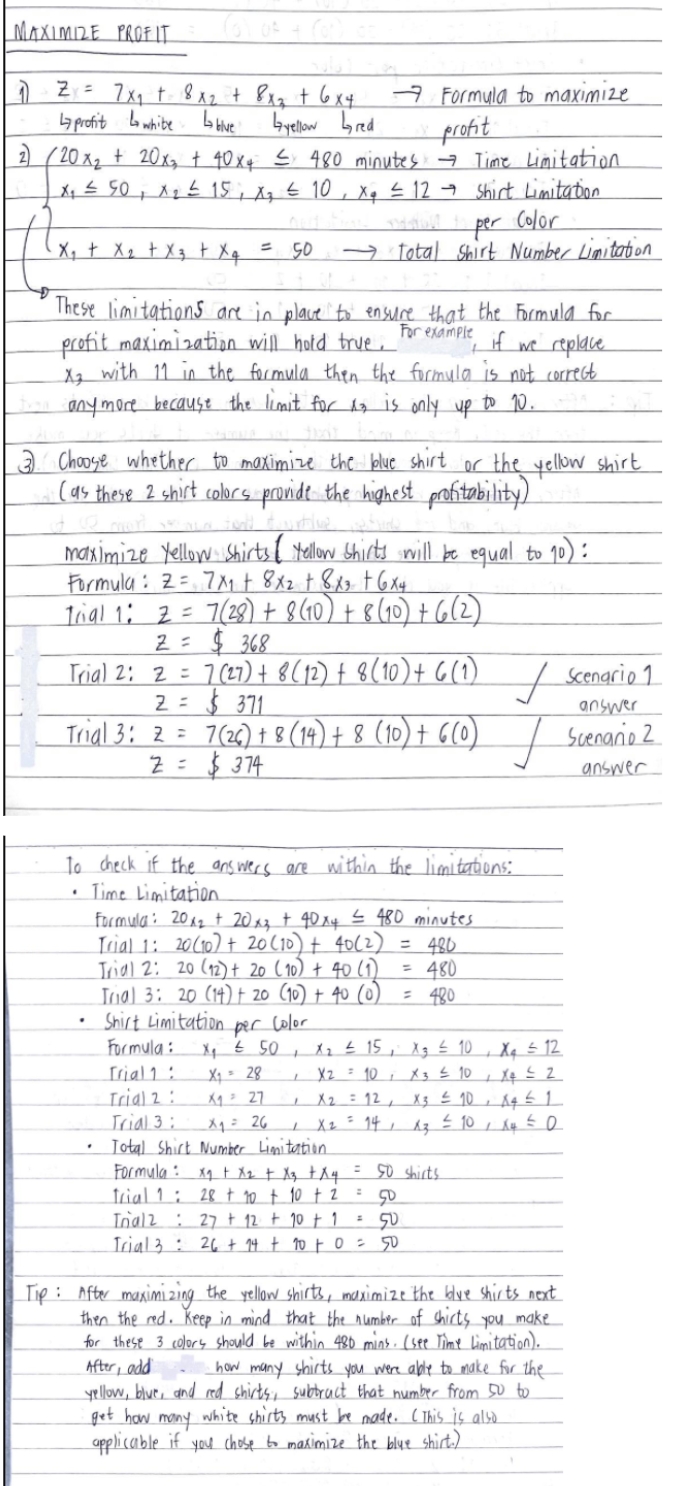 MAXIMIZE PROFIT
1) Z = 7x₁ + 8x₂ + 8x₃ + 6x₄ → Formula to maximize
↳profit ↳white ↳blue ↳yellow ↳red profit
2) 20x₂ + 20x₃ + 40x₄ ≤ 480 minutes → Time Limitation
x₁ ≤ 50, x₂ ≤ 15, x₃ ≤ 10, x₄ ≤ 12 → Shirt Limitation
per Color
x₁ + x₂ + x₃ + x₄ = 50 → Total Shirt Number Limitation
These limitations are in place to ensure that the Formula for
profit maximization will hold true. For example, if we replace
x₃ with 11 in the formula then the formula is not correct
anymore because the limit for x₃ is only up to 10.
3) Choose whether to maximize the blue shirt or the yellow shirt
(as these 2 shirt colors provide the highest profitability)
maximize Yellow Shirts (Yellow Shirts will be equal to 10):
Formula: Z = 7x₁ + 8x₂ + 8x₃ + 6x₄
Trial 1: Z = 7(28) + 8(10) + 8(10) + 6(2)
Z = $ 368
Trial 2: Z = 7(27) + 8(12) + 8(10) + 6(1) ✓ Scenario 1
Z = $ 371 answer
Trial 3: Z = 7(26) + 8(14) + 8(10) + 6(0) ✓ Scenario 2
Z = $ 374 answer
To check if the answers are within the limitations:
• Time Limitation
Formula: 20x₂ + 20x₃ + 40x₄ ≤ 480 minutes
Trial 1: 20(10) + 20(10) + 40(2) = 480
Trial 2: 20(12) + 20(10) + 40(1) = 480
Trial 3: 20(14) + 20(10) + 40(0) = 480
• Shirt Limitation per Color
Formula: x₁ ≤ 50, x₂ ≤ 15, x₃ ≤ 10, x₄ ≤ 12
Trial 1: x₁ = 28, x₂ = 10, x₃ ≤ 10, x₄ ≤ 2
Trial 2: x₁ = 27, x₂ = 12, x₃ ≤ 10, x₄ ≤ 1
Trial 3: x₁ = 26, x₂ = 14, x₃ ≤ 10, x₄ ≤ 0
• Total Shirt Number Limitation
Formula: x₁ + x₂ + x₃ + x₄ = 50 shirts
Trial 1: 28 + 10 + 10 + 2 = 50
Trial 2: 27 + 12 + 10 + 1 = 50
Trial 3: 26 + 14 + 10 + 0 = 50
Tip: After maximizing the yellow shirts, maximize the blue shirts next
then the red. Keep in mind that the number of shirts you make
for these 3 colors should be within 480 mins. (see Time Limitation).
After, add how many shirts you were able to make for the
yellow, blue, and red shirts, subtract that number from 50 to
get how many white shirts must be made. (This is also
applicable if you chose to maximize the blue shirt.)